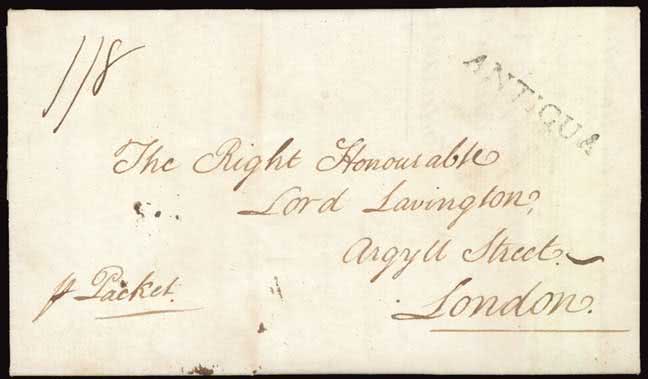 1/8
ANTIGUA
The Right Honourable
Lord Lavington,
Argyll Street.
London.
p Packet.